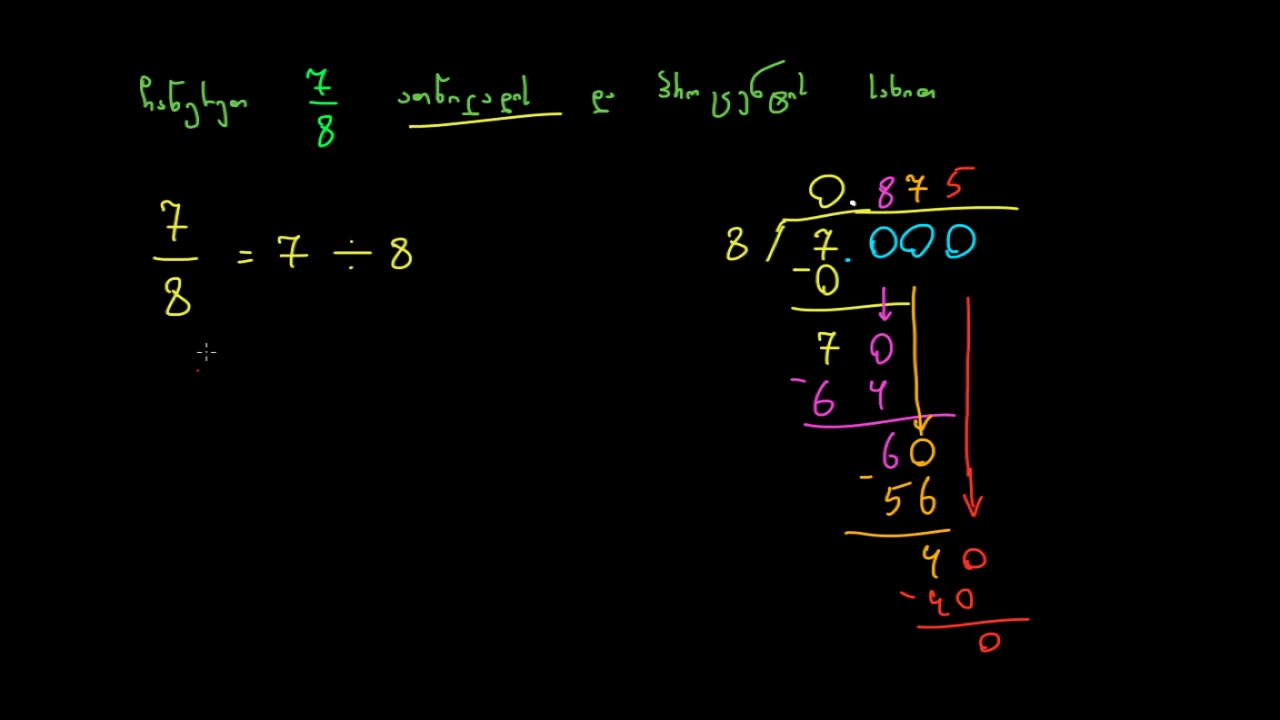 ჩაწერეთ 7/8 ათწილადის და პროცენტის სახით
7/8 = 7 ÷ 8
0.875
8 / 7.000
-0
70
-64
60
-56
40
-40
0